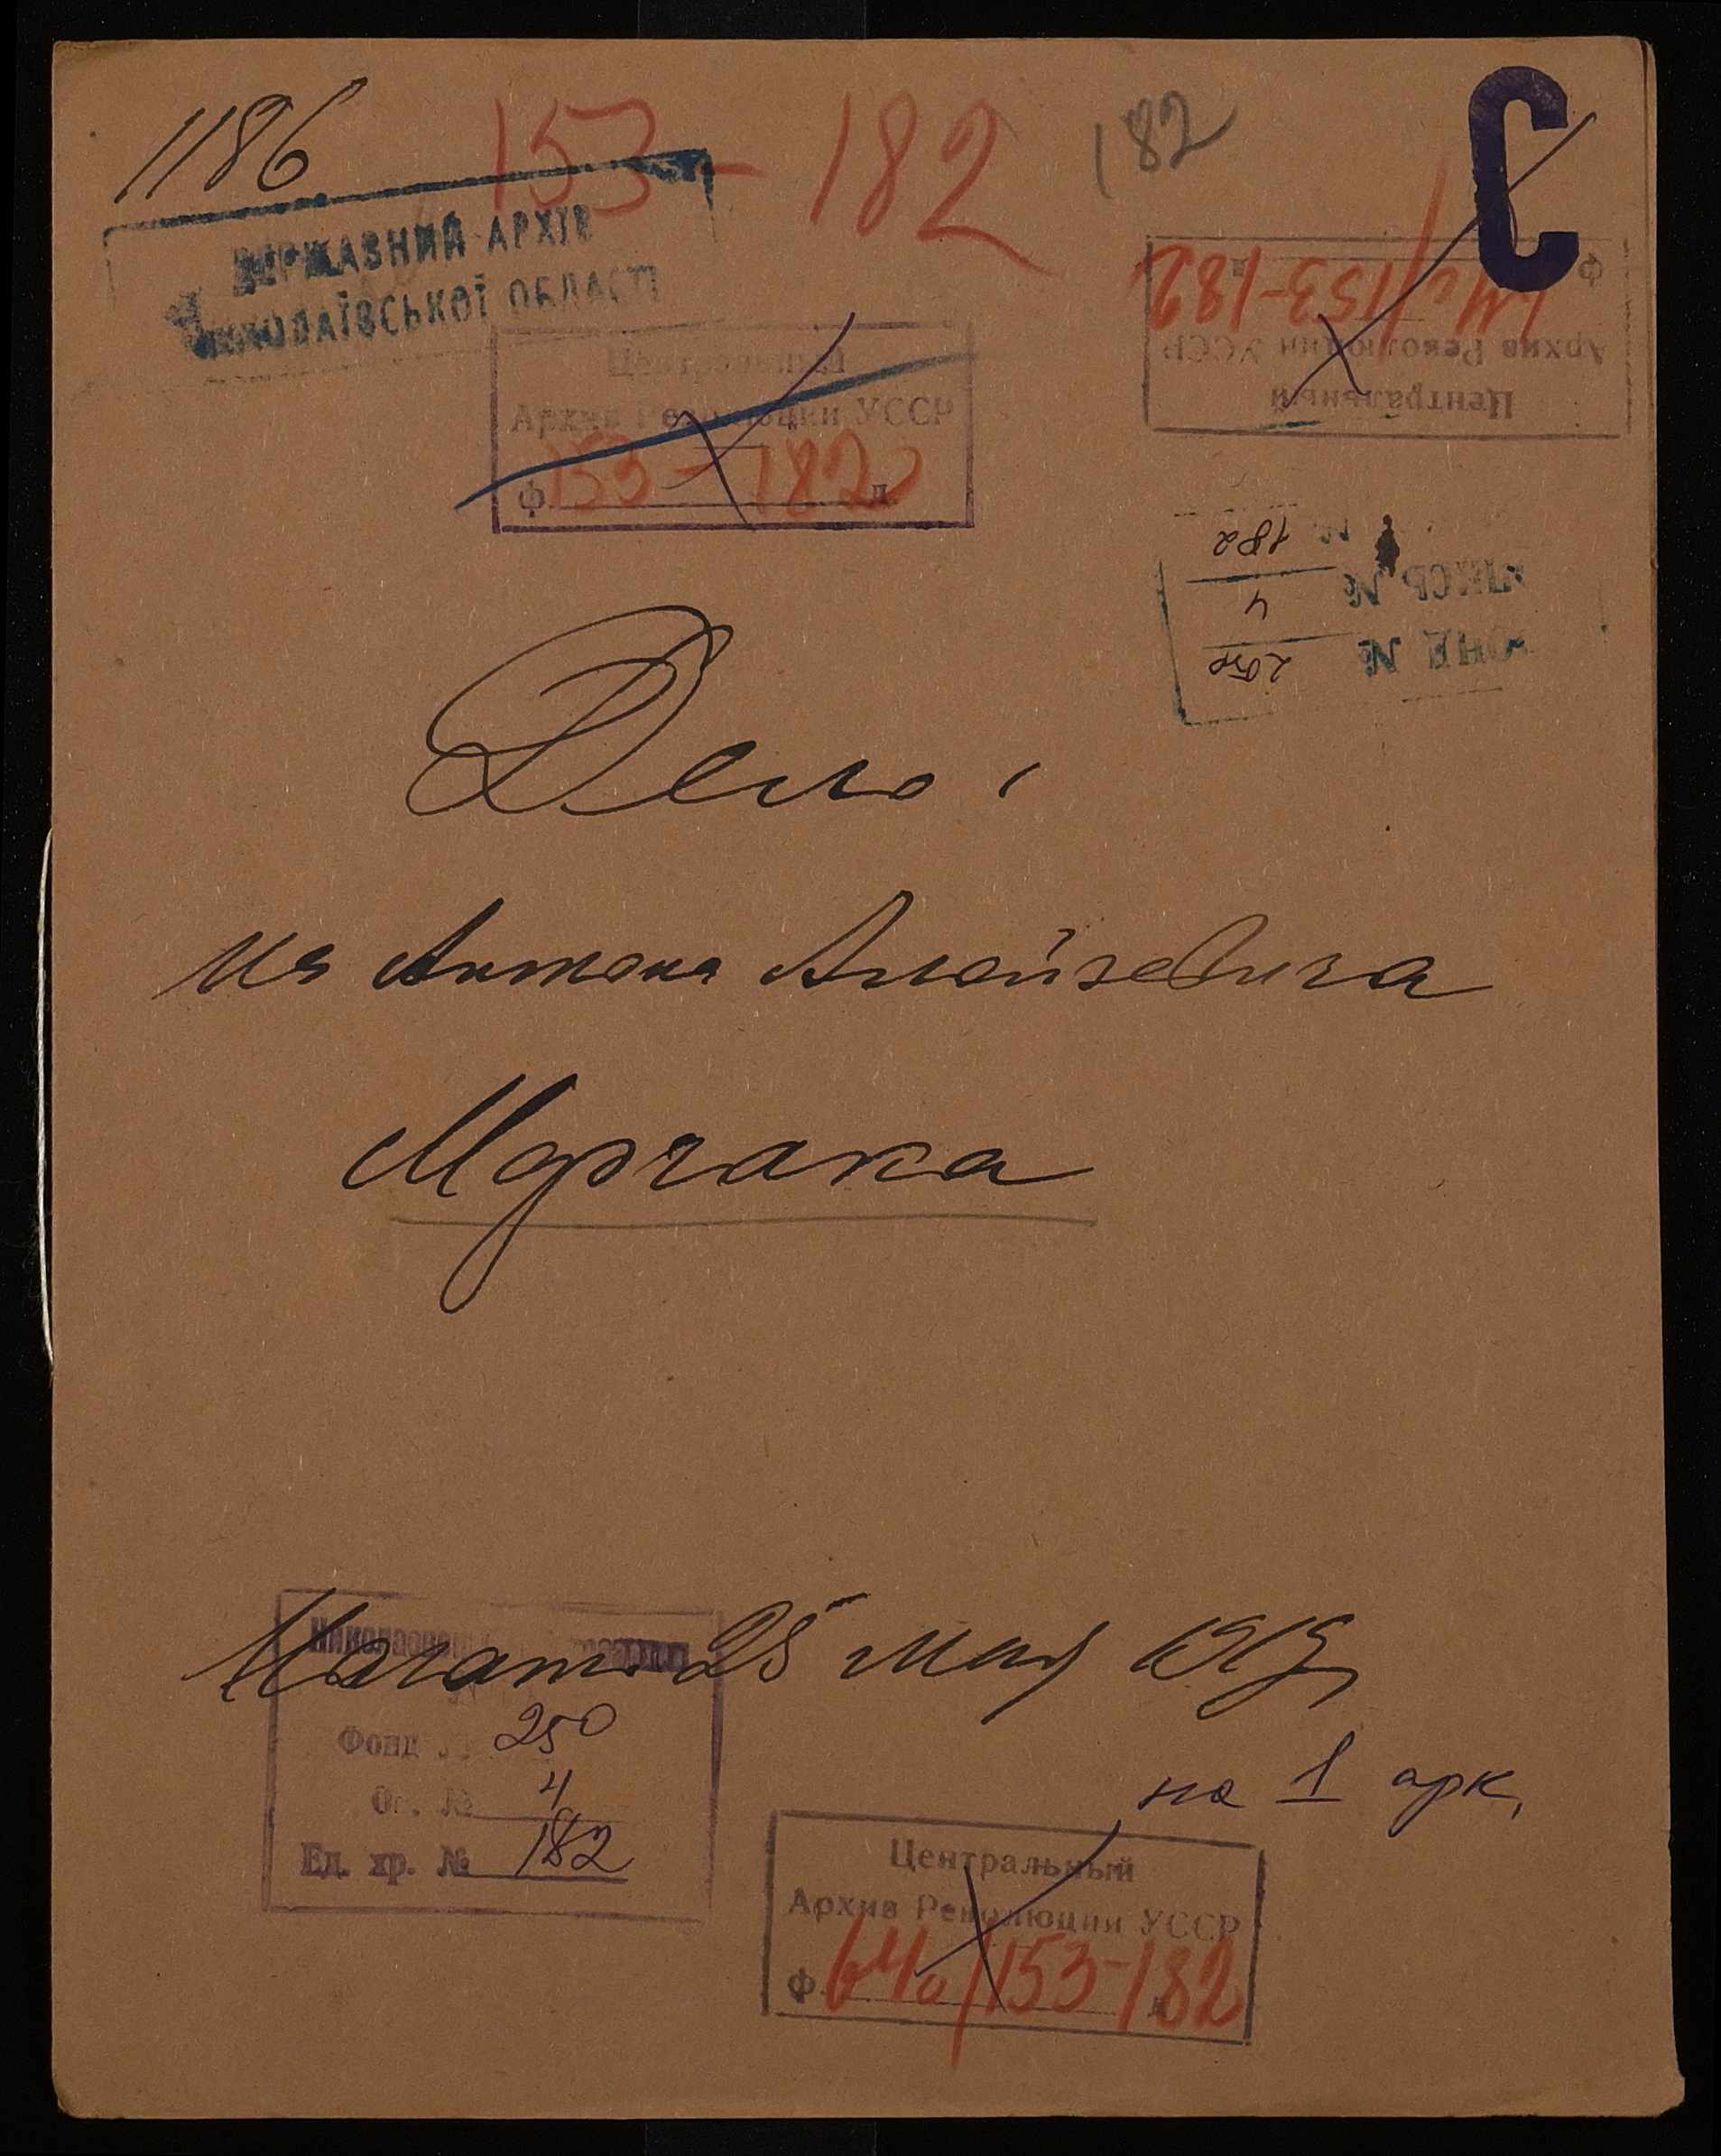 1186
153-182
182
С
ДЕРЖАВНИЙ АРХІВ
МИКОЛАЇВСЬКОЇ ОБЛАСТІ
Центральный
Архив Революции УССР
Ф. 64о/153-182
Центральный
Архив Революции УССР
Ф 153-182 д.
ФОНД № 250р
ОПИСЬ № 4
№ 182
Дело
Антона Алойзевича
Мрочака
Начато 25 мая
Фонд № 250
Оп. № 4
Ед. хр. № 182
на 1 арк.
Центральный
Архив Революции УССР
Ф. 64о/153-182